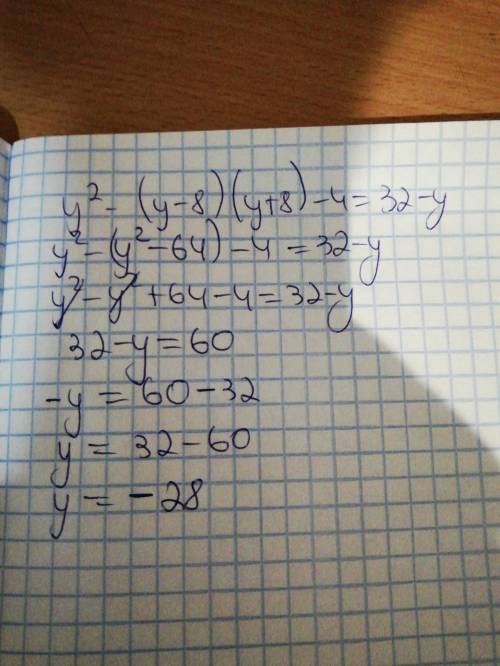 y² - (y-8)(y+8) -4 = 32-y
y² - (y² - 64) - 4 = 32-y
y² - y² + 64 - 4 = 32-y
32 - y = 60
-y = 60 - 32
y = 32 - 60
y = - 28